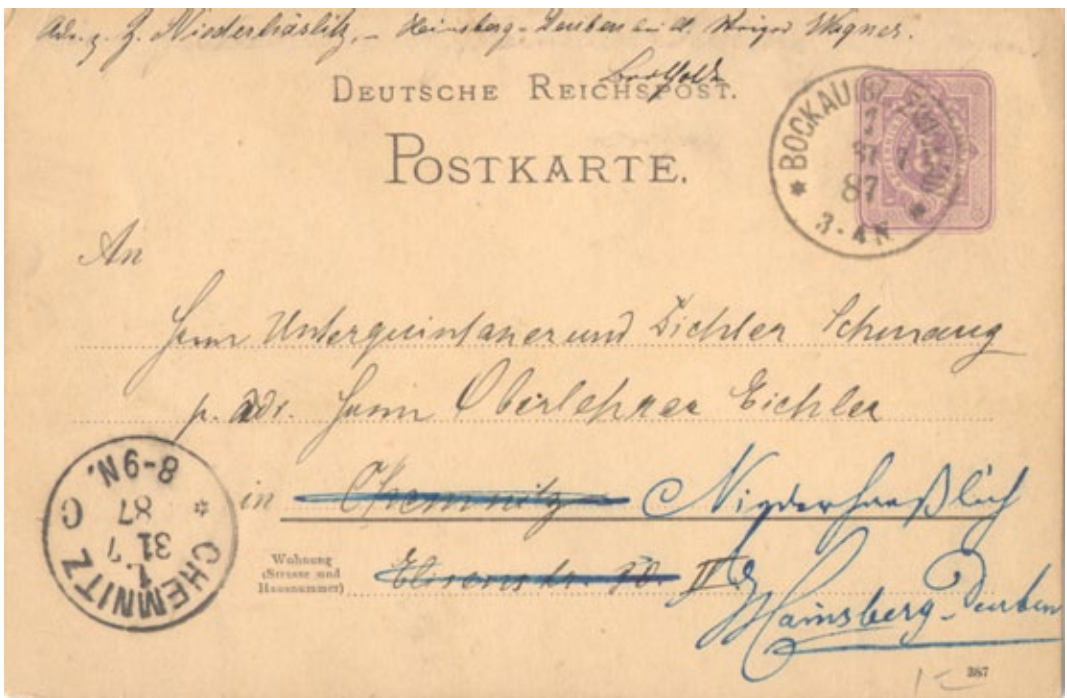 Niederhäslitz, – Hainsberg-Deuben bei H. Wagner.
Berthold
DEUTSCHE REICHSPOST.
POSTKARTE.
BOCKAU
87
3-4 N
An
Herrn Unterquintaner und Eichler
p. adr. Herrn Oberlehrer Eichler
in Chemnitz Niederhäßlich
Wohnung
(Strasse und
Hausnummer)
II
Hainsberg-Deuben
CHEMNITZ
1
31 7
87
8-9N.
C
387